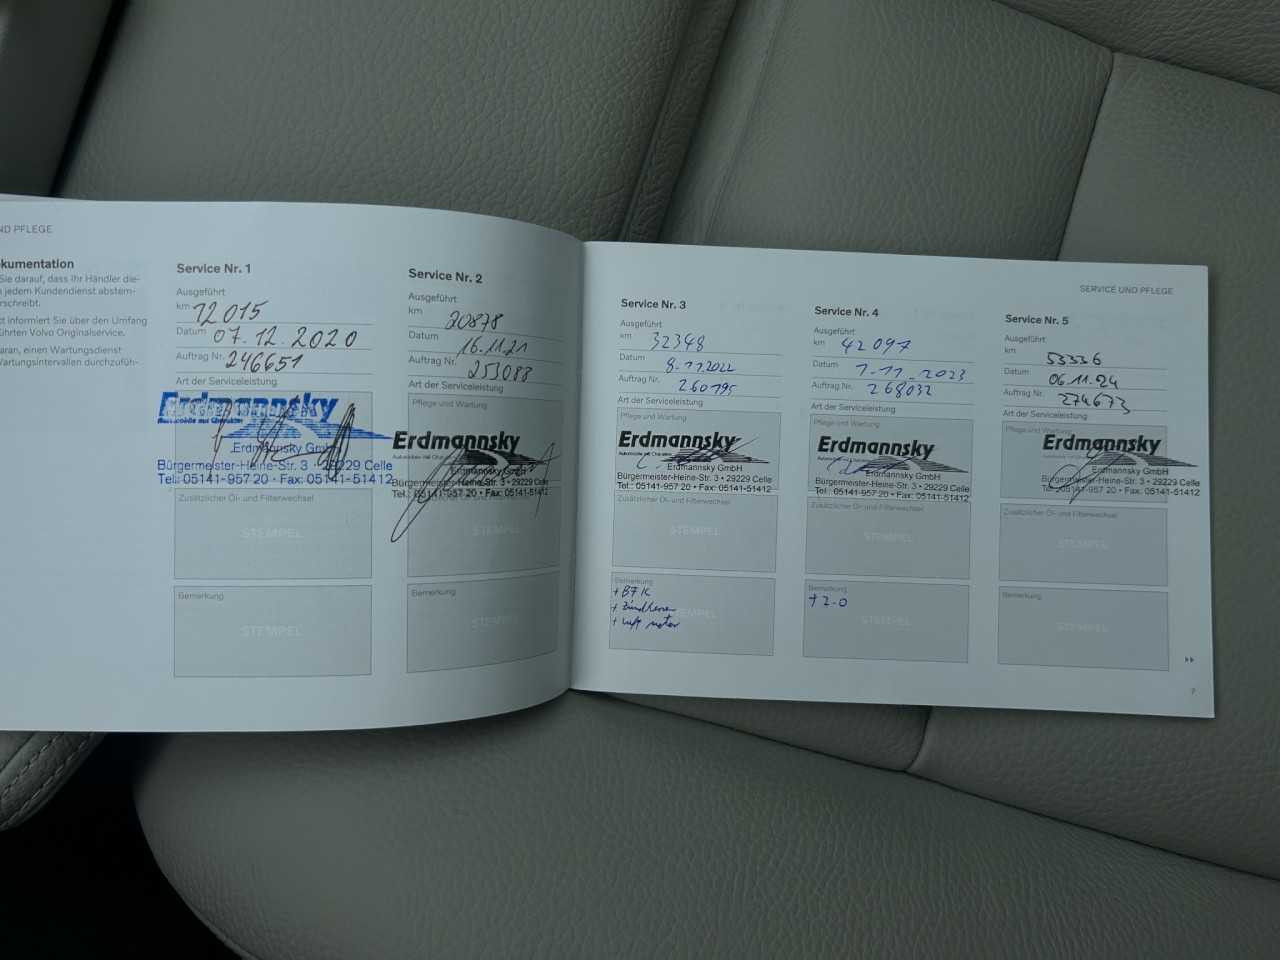 ND PFLEGE
kumentation
Sie darauf, dass Ihr Händler die-
jedem Kundendienst abstem-
rschreibt.
t informiert Sie über den Umfang
ührten Volvo Originalservice.
aran, einen Wartungsdienst
Wartungsintervallen durchzufüh-
Service Nr. 1
Ausgeführt
km 12015
Datum 07.12.2020
Auftrag Nr. 246651
Art der Serviceleistung
Erdmannsky
Automobile mit Charakter
Erdmannsky GmbH
Bürgermeister-Heine-Str. 3 • 29229 Celle
Tel.: 05141-957 20 • Fax: 05141-51412
Zusätzlicher Öl- und Filterwechsel
STEMPEL
Bemerkung
STEMPEL
Service Nr. 2
Ausgeführt
km 20878
Datum 16.11.21
Auftrag Nr. 253088
Art der Serviceleistung
Pflege und Wartung
Erdmannsky
Erdmannsky GmbH
Bürgermeister-Heine-Str. 3 • 29229 Celle
Tel.: 05141-957 20 • Fax: 05141-51412
STEMPEL
Bemerkung
STEMPEL
SERVICE UND PFLEGE
Service Nr. 3
Ausgeführt
km 32348
Datum 8.11.2022
Auftrag Nr. 260195
Art der Serviceleistung
Pflege und Wartung
Erdmannsky
Automobile mit Charakter
Erdmannsky GmbH
Bürgermeister-Heine-Str. 3 • 29229 Celle
Tel.: 05141-957 20 • Fax: 05141-51412
Zusätzlicher Öl- und Filterwechsel
STEMPEL
Bemerkung
+ BFK
+ Zündkerzen
+ Luft motor
STEMPEL
Service Nr. 4
Ausgeführt
km 42097
Datum 7.11.2023
Auftrag Nr. 268032
Art der Serviceleistung
Pflege und Wartung
Erdmannsky
Automobile mit Charakter
Erdmannsky GmbH
Bürgermeister-Heine-Str. 3 • 29229 Celle
Tel.: 05141-957 20 • Fax: 05141-51412
Zusätzlicher Öl- und Filterwechsel
STEMPEL
Bemerkung
STEMPEL
Service Nr. 5
Ausgeführt
km 53336
Datum 06.11.24
Auftrag Nr. 274673
Art der Serviceleistung
Pflege und Wartung
Erdmannsky
Erdmannsky GmbH
Bürgermeister-Heine-Str. 3 • 29229 Celle
Tel.: 05141-957 20 • Fax: 05141-51412
Zusätzlicher Öl- und Filterwechsel
STEMPEL
Bemerkung
STEMPEL
7